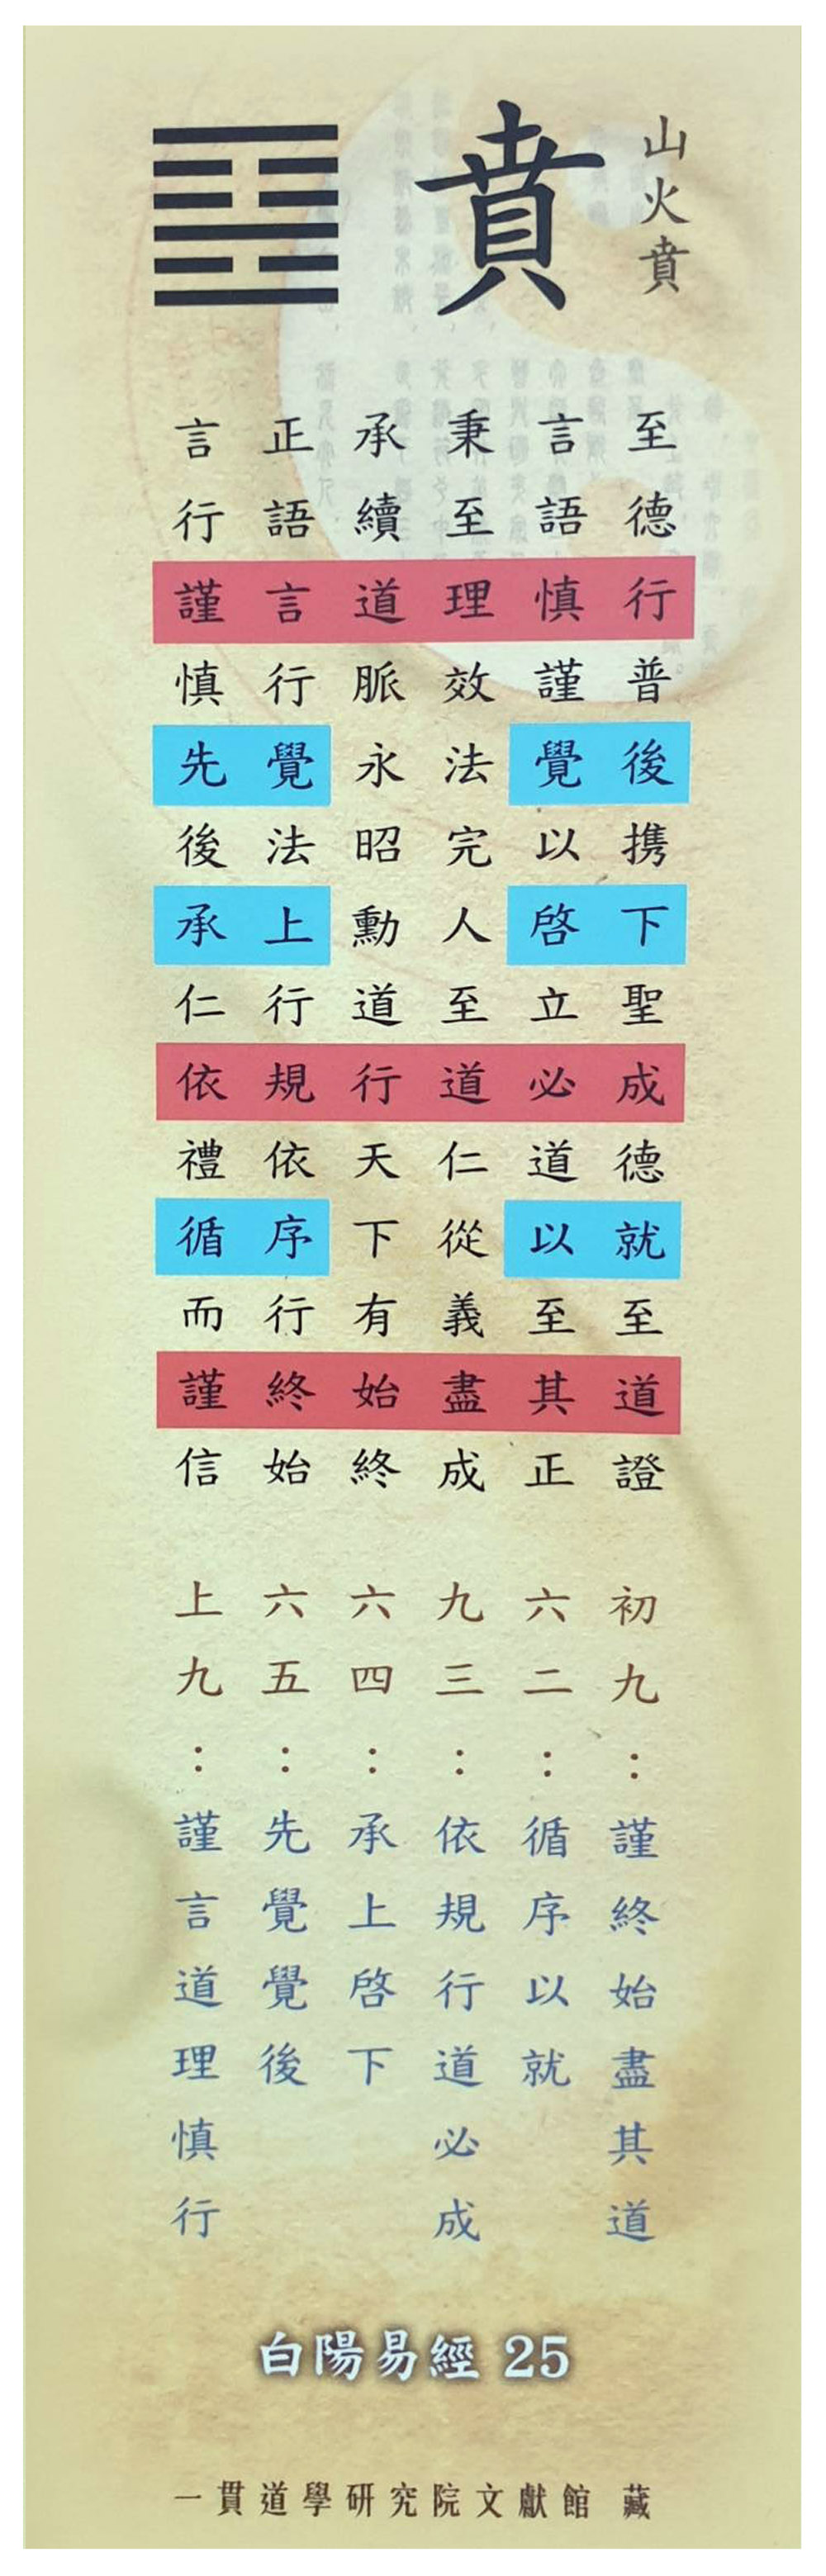 山火賁
賁
至德行普後携下聖成德就至道證
言語慎謹覺以啓立必道以至其正
秉至理效法完人至道仁從義盡成
承續道脈永昭勳道行天下有始終
正語言行覺法上行規依序行終始
言行謹慎先後承仁依禮循而謹信
初九：謹終始盡其道
六二：循序以就
九三：依規行道必成
六四：承上啓下
六五：先覺覺後
上九：謹言道理慎行
白陽易經 25
一貫道學研究院文獻館 藏